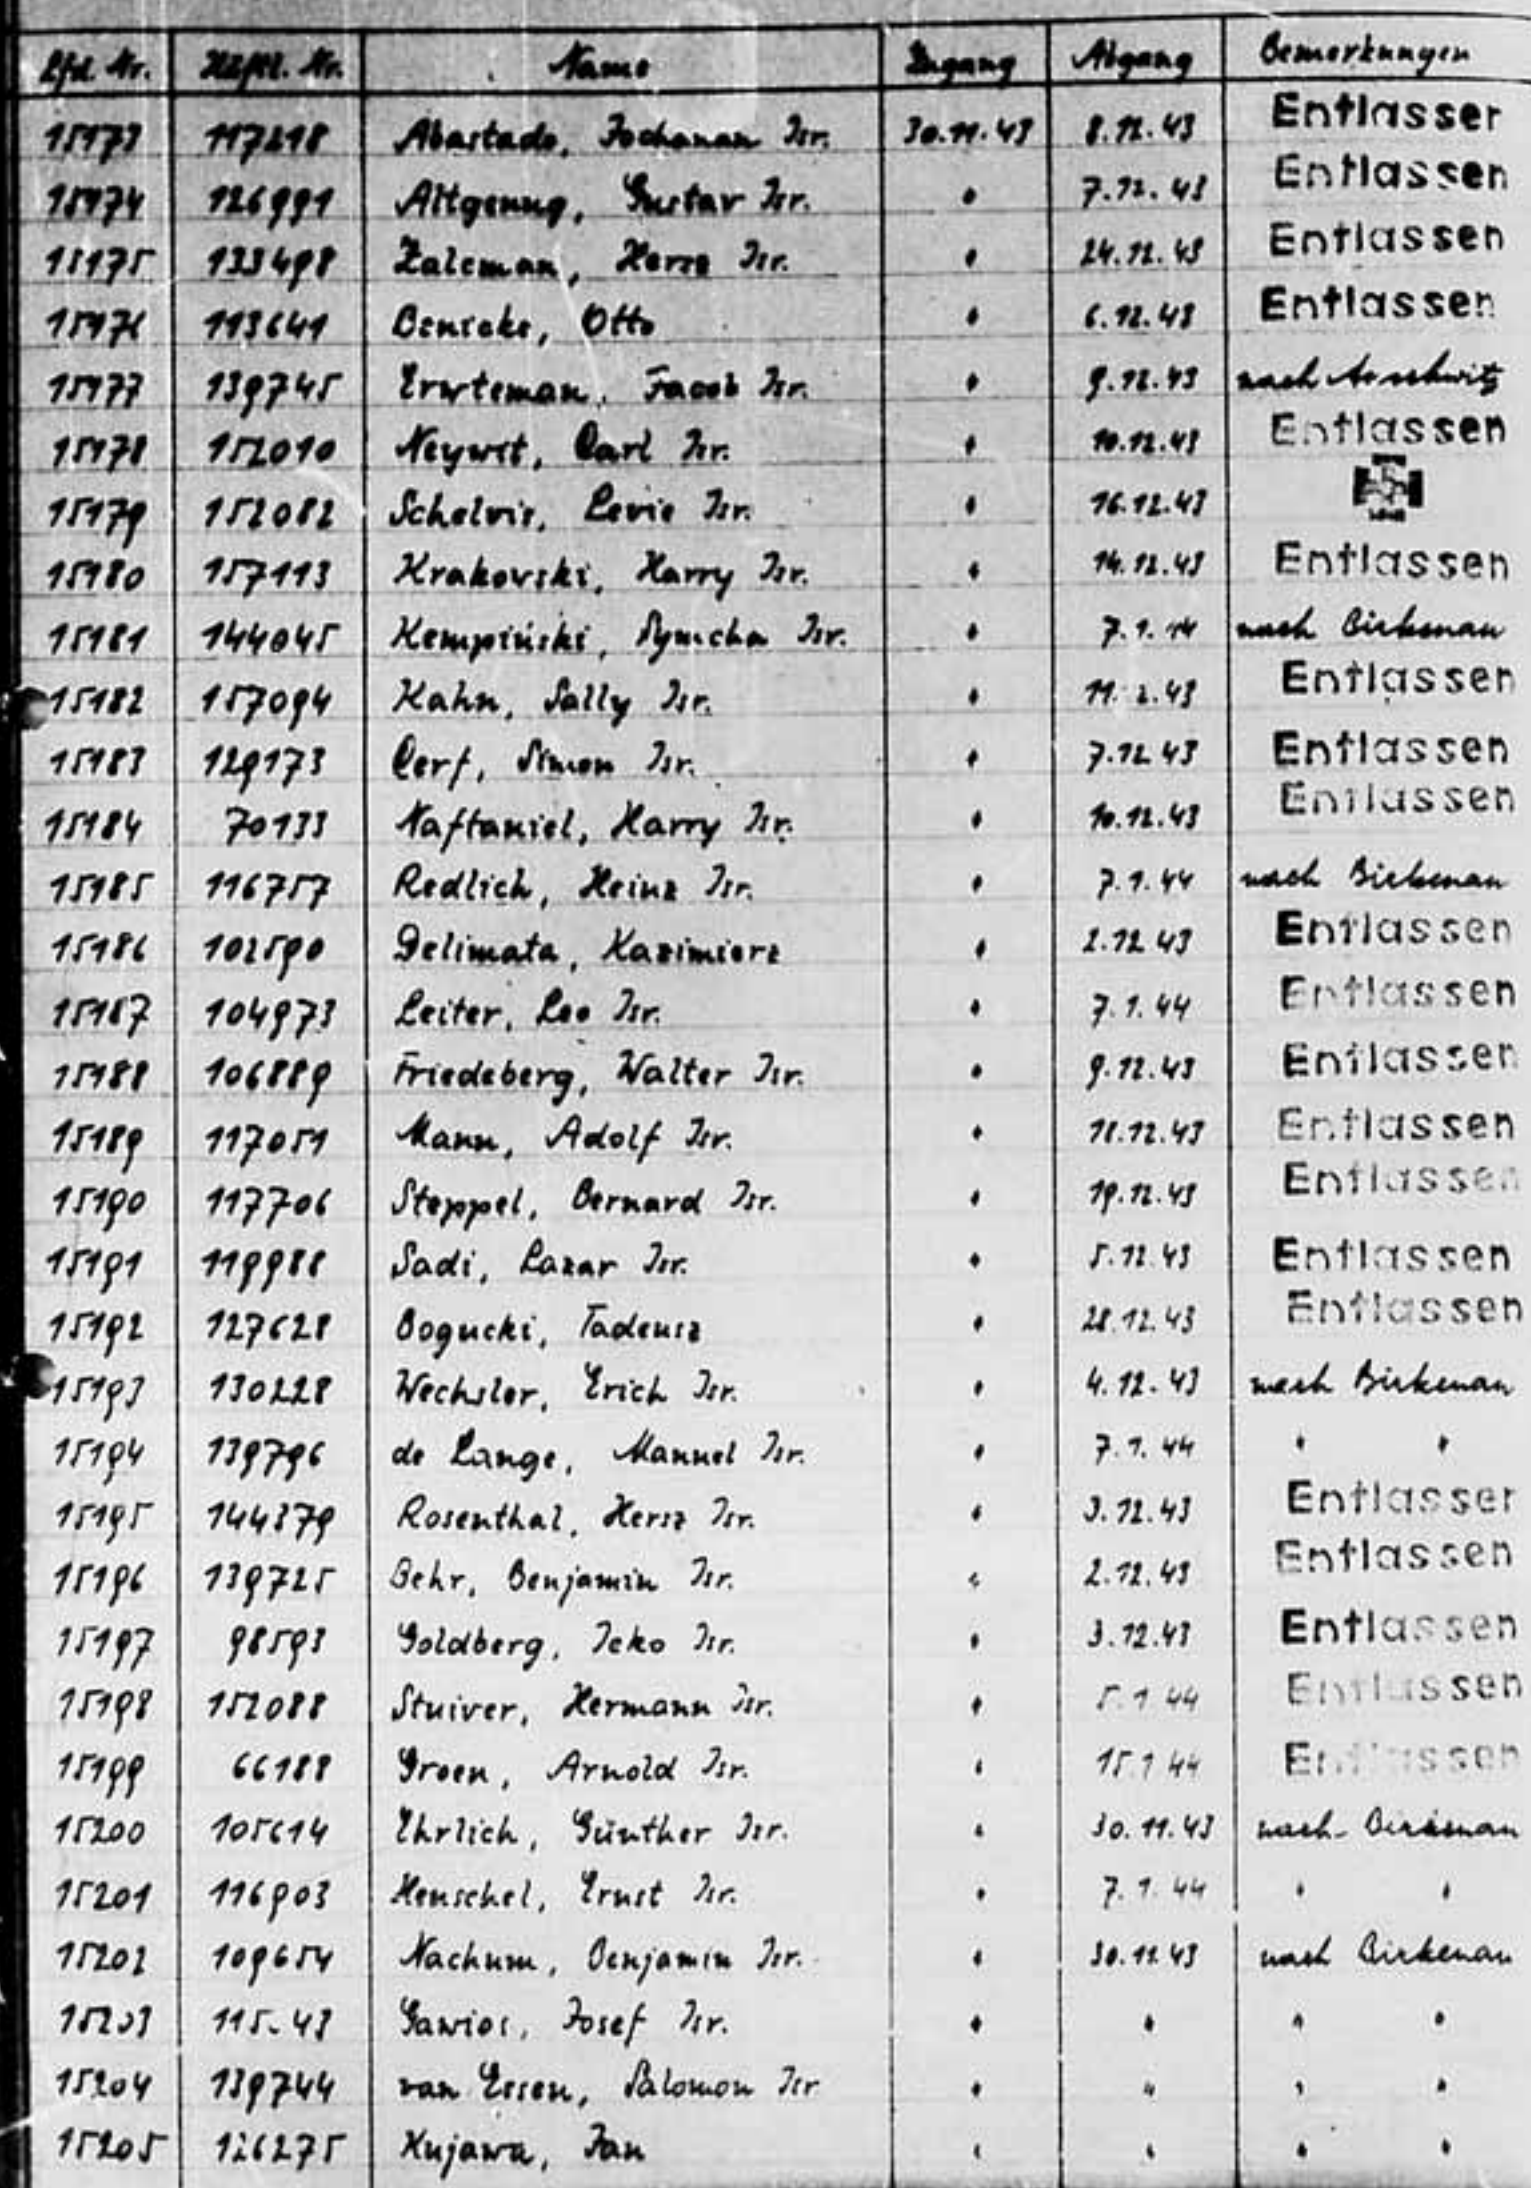 Lfd. Nr. Häftl. Nr. Name Zugang Abgang Bemerkungen
15173 117218 Abastado, Jochanan Isr. 30.11.43 8.12.43 Entlassen
15174 126991 Altgenug, Gustav Isr. " 7.12.43 Entlassen
15175 133498 Zalcman, Isr. " 24.12.43 Entlassen
15176 113641 Benicke, Otto " 6.12.43 Entlassen
15177 139745 Jacob Isr. " 9.12.43 nach Auschwitz
15178 152010 Carl Isr. " 10.12.43 Entlassen
15179 152082 Schelvis, Levie Isr. " 16.12.43
15180 157113 Krakovski, Harry Isr. " 14.12.43 Entlassen
15181 144045 Kempiński, Symcha Isr. " 7.1.44 nach Birkenau
15182 157094 Kahn, Sally Isr. " Entlassen
15183 129173 Cerf, Simon Isr. " 7.12.43 Entlassen
15184 70133 Naftaniel, Harry Isr. " 10.12.43 Entlassen
15185 116757 Redlich, Heinz Isr. " 7.1.44 nach Birkenau
15186 102590 Delimata, Kazimierz " 2.12.43 Entlassen
15187 104973 Leiter, Leo Isr. " 7.1.44 Entlassen
15188 106889 Friedeberg, Walter Isr. " 9.12.43 Entlassen
15189 117051 Mann, Adolf Isr. " Entlassen
15190 117706 Steppel, Bernard Isr. " 19.12.43 Entlassen
15191 119988 Sadi, Lazar Isr. " 5.12.43 Entlassen
15192 127628 Bogucki, Tadeusz " 28.12.43 Entlassen
15193 130228 Wechsler, Erich Isr. " 4.12.43 nach Birkenau
15194 139796 de Lange, Manuel Isr. " 7.1.44 " "
15195 144379 Rosenthal, Hersz Isr. " 3.12.43 Entlassen
15196 139725 Behr, Benjamin Isr. " 2.12.43 Entlassen
15197 98593 Goldberg, Icko Isr. " 3.12.43 Entlassen
15198 152088 Stuiver, Hermann Isr. " 5.1.44 Entlassen
15199 66188 Groen, Arnold Isr. " 15.1.44 Entlassen
15200 105614 Ehrlich, Günther Isr. " 30.11.43 nach Birkenau
15201 116903 Henschel, Ernst Isr. " 7.1.44 " "
15202 109654 Nachum, Benjamin Isr. " 30.11.43 nach Birkenau
15203 Josef Isr. " " " "
15204 139744 van Essen, Salomon Isr " " " "
15205 126275 Kujawa, Jan " " " "